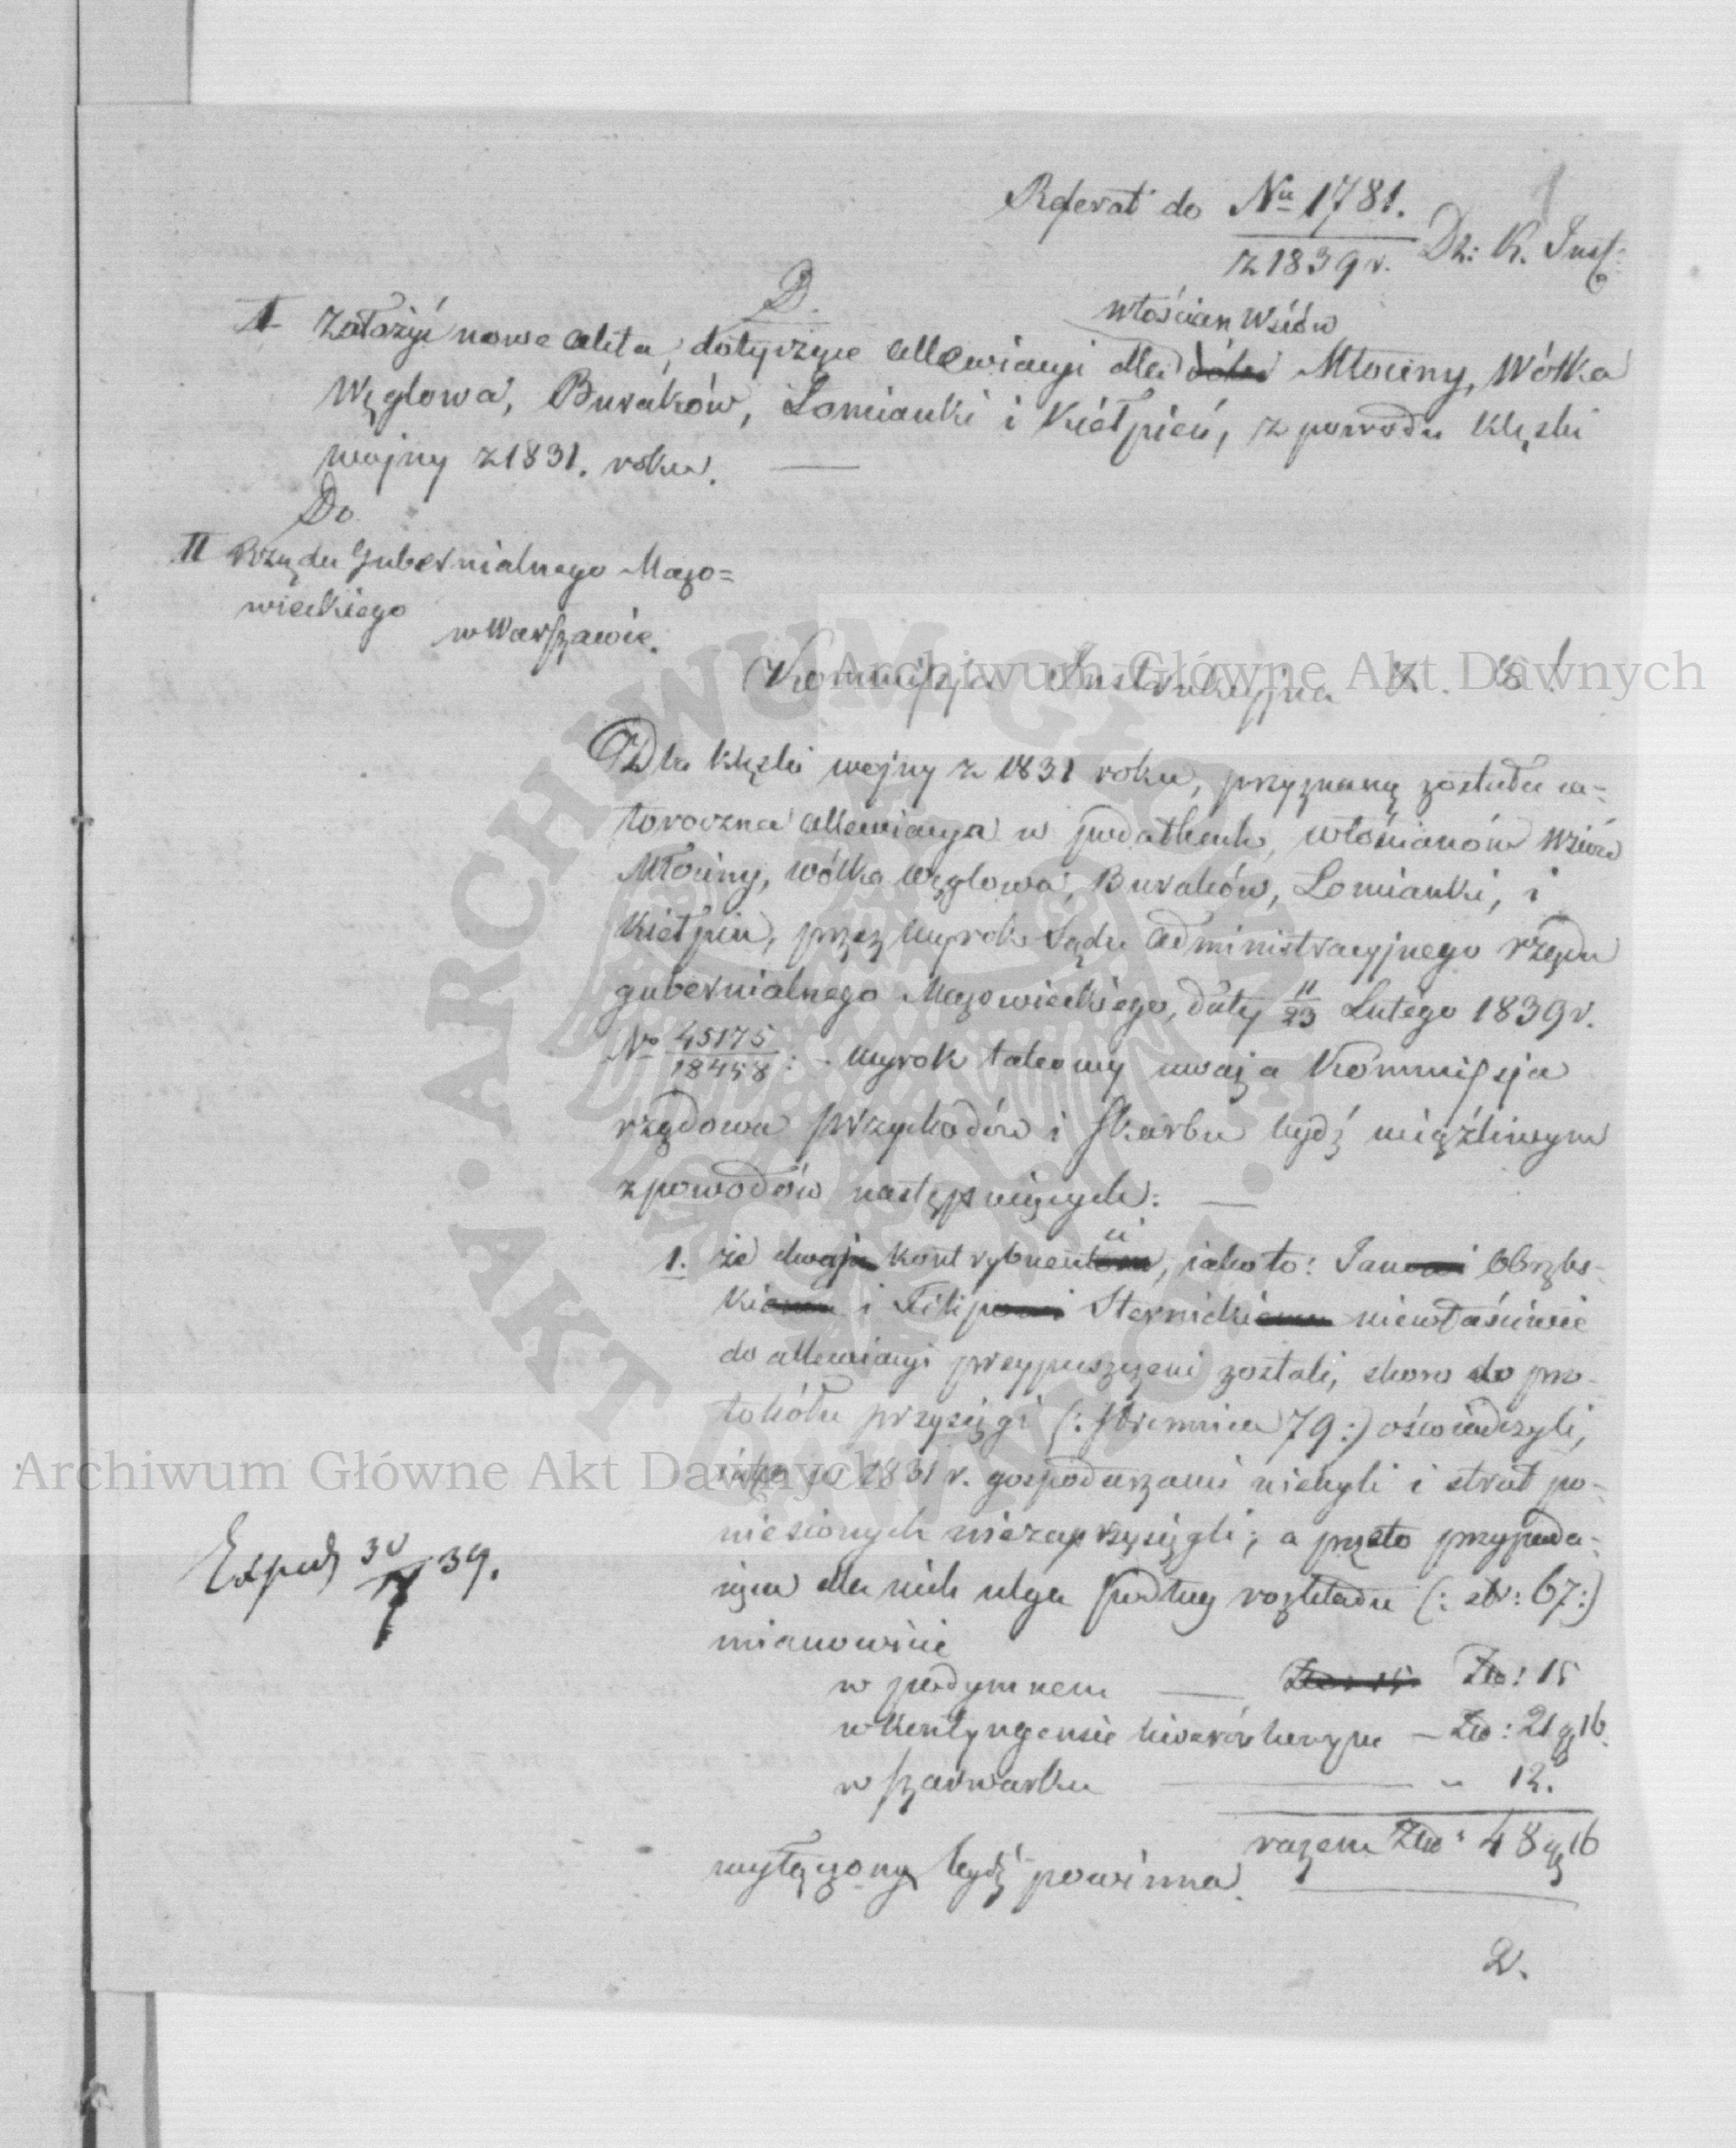 1
Referat do Na 1781. / z 1839 r. Dz: K. Inst:
D.
włościan wsiów
I Założyć nowe akta, dotyczące allewiacyi dla dóbr Młociny, Wólka
Węglowa, Buraków, Łomianki i Kiełpień, z powodu klęski
wojny z 1831. roku. —
Do
II Rządu Gubernialnego Mazo=
wieckiego
w Warszawie.
Kommissja Instrukcyjna
Dla klęski wojny z 1831 roku, przyznaną została
toroczna allewiacya w podatkach, włościanów wsiów
Młociny, Wólka Węglowa, Buraków, Łomianki, i
Kiełpin, przez wyrok Sądu Administracyjnego rządu
gubernialnego Mazowieckiego, daty 11/23 Lutego 1839 r.
No 45175/18458: - Wyrok takowy uważa Kommissja
rządowa przychodów i skarbu bydź uciążliwym
z powodów następujących: —
ci
1. że dwaj kontrybuentom, jako to: Janowi Obrzbs-
kiemu i Filipowi Sternickiemu niewłaściwie
do allewiacyi przypuszczeni zostali, skoro do pro-
tokółu przysięgi (: stronnica 79:) oświadczyli,
iako w 1831 r. gospodarzami niebyli i strat po-
niesionych niezaprzysięgli; a przeto przypada-
iąca dla nich ulga podług rozkładu (: str: 67:)
mianowicie
w podymnem — Złp: 15 Złp: 15
w kontyngensie liwerunkowym — Złp: 21 g 16.
w szarwarku — " 12.
razem Złp: 48 g 16
wyłączoną bydź powinna.
2.
Exped 30/7 39.
Archiwum Główne Akt Dawnych
Archiwum Główne Akt Dawnych
ARCHIWUM GŁÓWNE AKT DAWNYCH